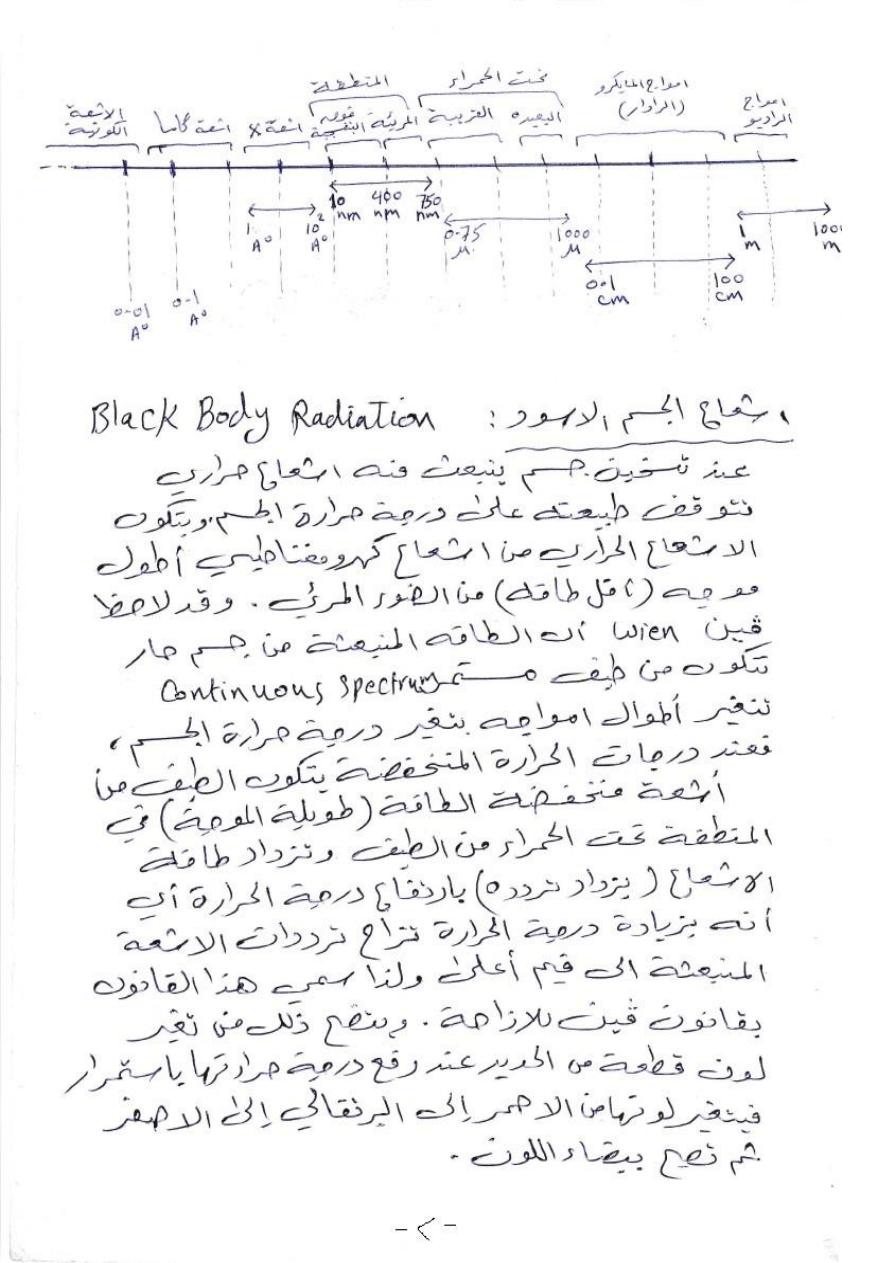 الاشعة الكونية
اشعة گاما
اشعة X
المنطقة
فوق البنفسجية
المرئية
تحت الحمراء
القريبة
البعيده
امواج المايكرو (الرادار)
امواج الراديو
0.01 A°
0.1 A°
1 A°
10² A°
10 nm
400 nm
750 nm
0.75 μ
1000 μ
0.1 cm
100 cm
1 m
1000 m
اشعاع الجسم الاسود : Black Body Radiation
عند تسخين جسم ينبعث منه اشعاع حراري
تتوقف طبيعته على درجة حرارة الجسم. ويتكون
الاشعاع الحراري من اشعاع كهرومغناطيسي أطول
موجه (اقل طاقه) من الضوء المرئي. وقد لاحظ
ڤين wien أن الطاقه المنبعثة من جسم حار
تتكون من طيف مستمر Continuous spectrum
تتغير أطوال امواجه بتغير درجة حرارة الجسم ،
فعند درجات الحرارة المنخفضة يتكون الطيف من
أشعة منخفضة الطاقة (طويلة الموجة) في
المنطقة تحت الحمراء من الطيف وتزداد طاقة
الاشعاع (يزداد تردده) بارتفاع درجة الحرارة أي
أنه بزيادة درجة الحرارة تزاح ترددات الاشعة
المنبعثة الى قيم أعلى ولذا سمي هذا القانون
بقانون ڤين للازاحة. ويتضح ذلك من تغير
لون قطعة من الحديد عند رفع درجة حرارتها باستمرار
فيتغير لونها من الاحمر إلى البرتقالي إلى الاصفر
ثم تصبح بيضاء اللون.
-٢-